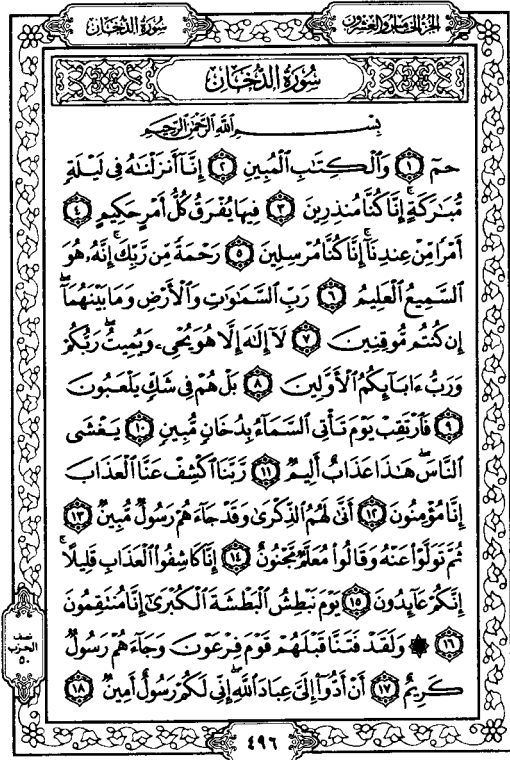 سُورَةُ الدُّخَانِ
الجُزْءُ الخَامِسُ وَالعِشْرُونَ
سُورَةُ الدُّخَانِ
بِسْمِ ٱللَّهِ ٱلرَّحْمَٰنِ ٱلرَّحِيمِ
حمٓ ١ وَٱلْكِتَٰبِ ٱلْمُبِينِ ٢ إِنَّآ أَنزَلْنَٰهُ فِى لَيْلَةٍ
مُّبَٰرَكَةٍ ۚ إِنَّا كُنَّا مُنذِرِينَ ٣ فِيهَا يُفْرَقُ كُلُّ أَمْرٍ حَكِيمٍ ٤
أَمْرًا مِّنْ عِندِنَآ ۚ إِنَّا كُنَّا مُرْسِلِينَ ٥ رَحْمَةً مِّن رَّبِّكَ ۚ إِنَّهُۥ هُوَ
ٱلسَّمِيعُ ٱلْعَلِيمُ ٦ رَبِّ ٱلسَّمَٰوَٰتِ وَٱلْأَرْضِ وَمَا بَيْنَهُمَآ ۖ
إِن كُنتُم مُّوقِنِينَ ٧ لَآ إِلَٰهَ إِلَّا هُوَ يُحْىِۦ وَيُمِيتُ ۖ رَبُّكُمْ
وَرَبُّ ءَابَآئِكُمُ ٱلْأَوَّلِينَ ٨ بَلْ هُمْ فِى شَكٍّ يَلْعَبُونَ
٩ فَٱرْتَقِبْ يَوْمَ تَأْتِى ٱلسَّمَآءُ بِدُخَانٍ مُّبِينٍ ١٠ يَغْشَى
ٱلنَّاسَ ۖ هَٰذَا عَذَابٌ أَلِيمٌ ١١ رَّبَّنَا ٱكْشِفْ عَنَّا ٱلْعَذَابَ
إِنَّا مُؤْمِنُونَ ١٢ أَنَّىٰ لَهُمُ ٱلذِّكْرَىٰ وَقَدْ جَآءَهُمْ رَسُولٌ مُّبِينٌ ١٣
ثُمَّ تَوَلَّوْا۟ عَنْهُ وَقَالُوا۟ مُعَلَّمٌ مَّجْنُونٌ ١٤ إِنَّا كَاشِفُوا۟ ٱلْعَذَابِ قَلِيلًا ۚ
إِنَّكُمْ عَآئِدُونَ ١٥ يَوْمَ نَبْطِشُ ٱلْبَطْشَةَ ٱلْكُبْرَىٰٓ إِنَّا مُنتَقِمُونَ
١٦ ۞ وَلَقَدْ فَتَنَّا قَبْلَهُمْ قَوْمَ فِرْعَوْنَ وَجَآءَهُمْ رَسُولٌ
كَرِيمٌ ١٧ أَنْ أَدُّوٓا۟ إِلَىَّ عِبَادَ ٱللَّهِ ۖ إِنِّى لَكُمْ رَسُولٌ أَمِينٌ ١٨
نصف
الحزب
٥٠
٤٩٦